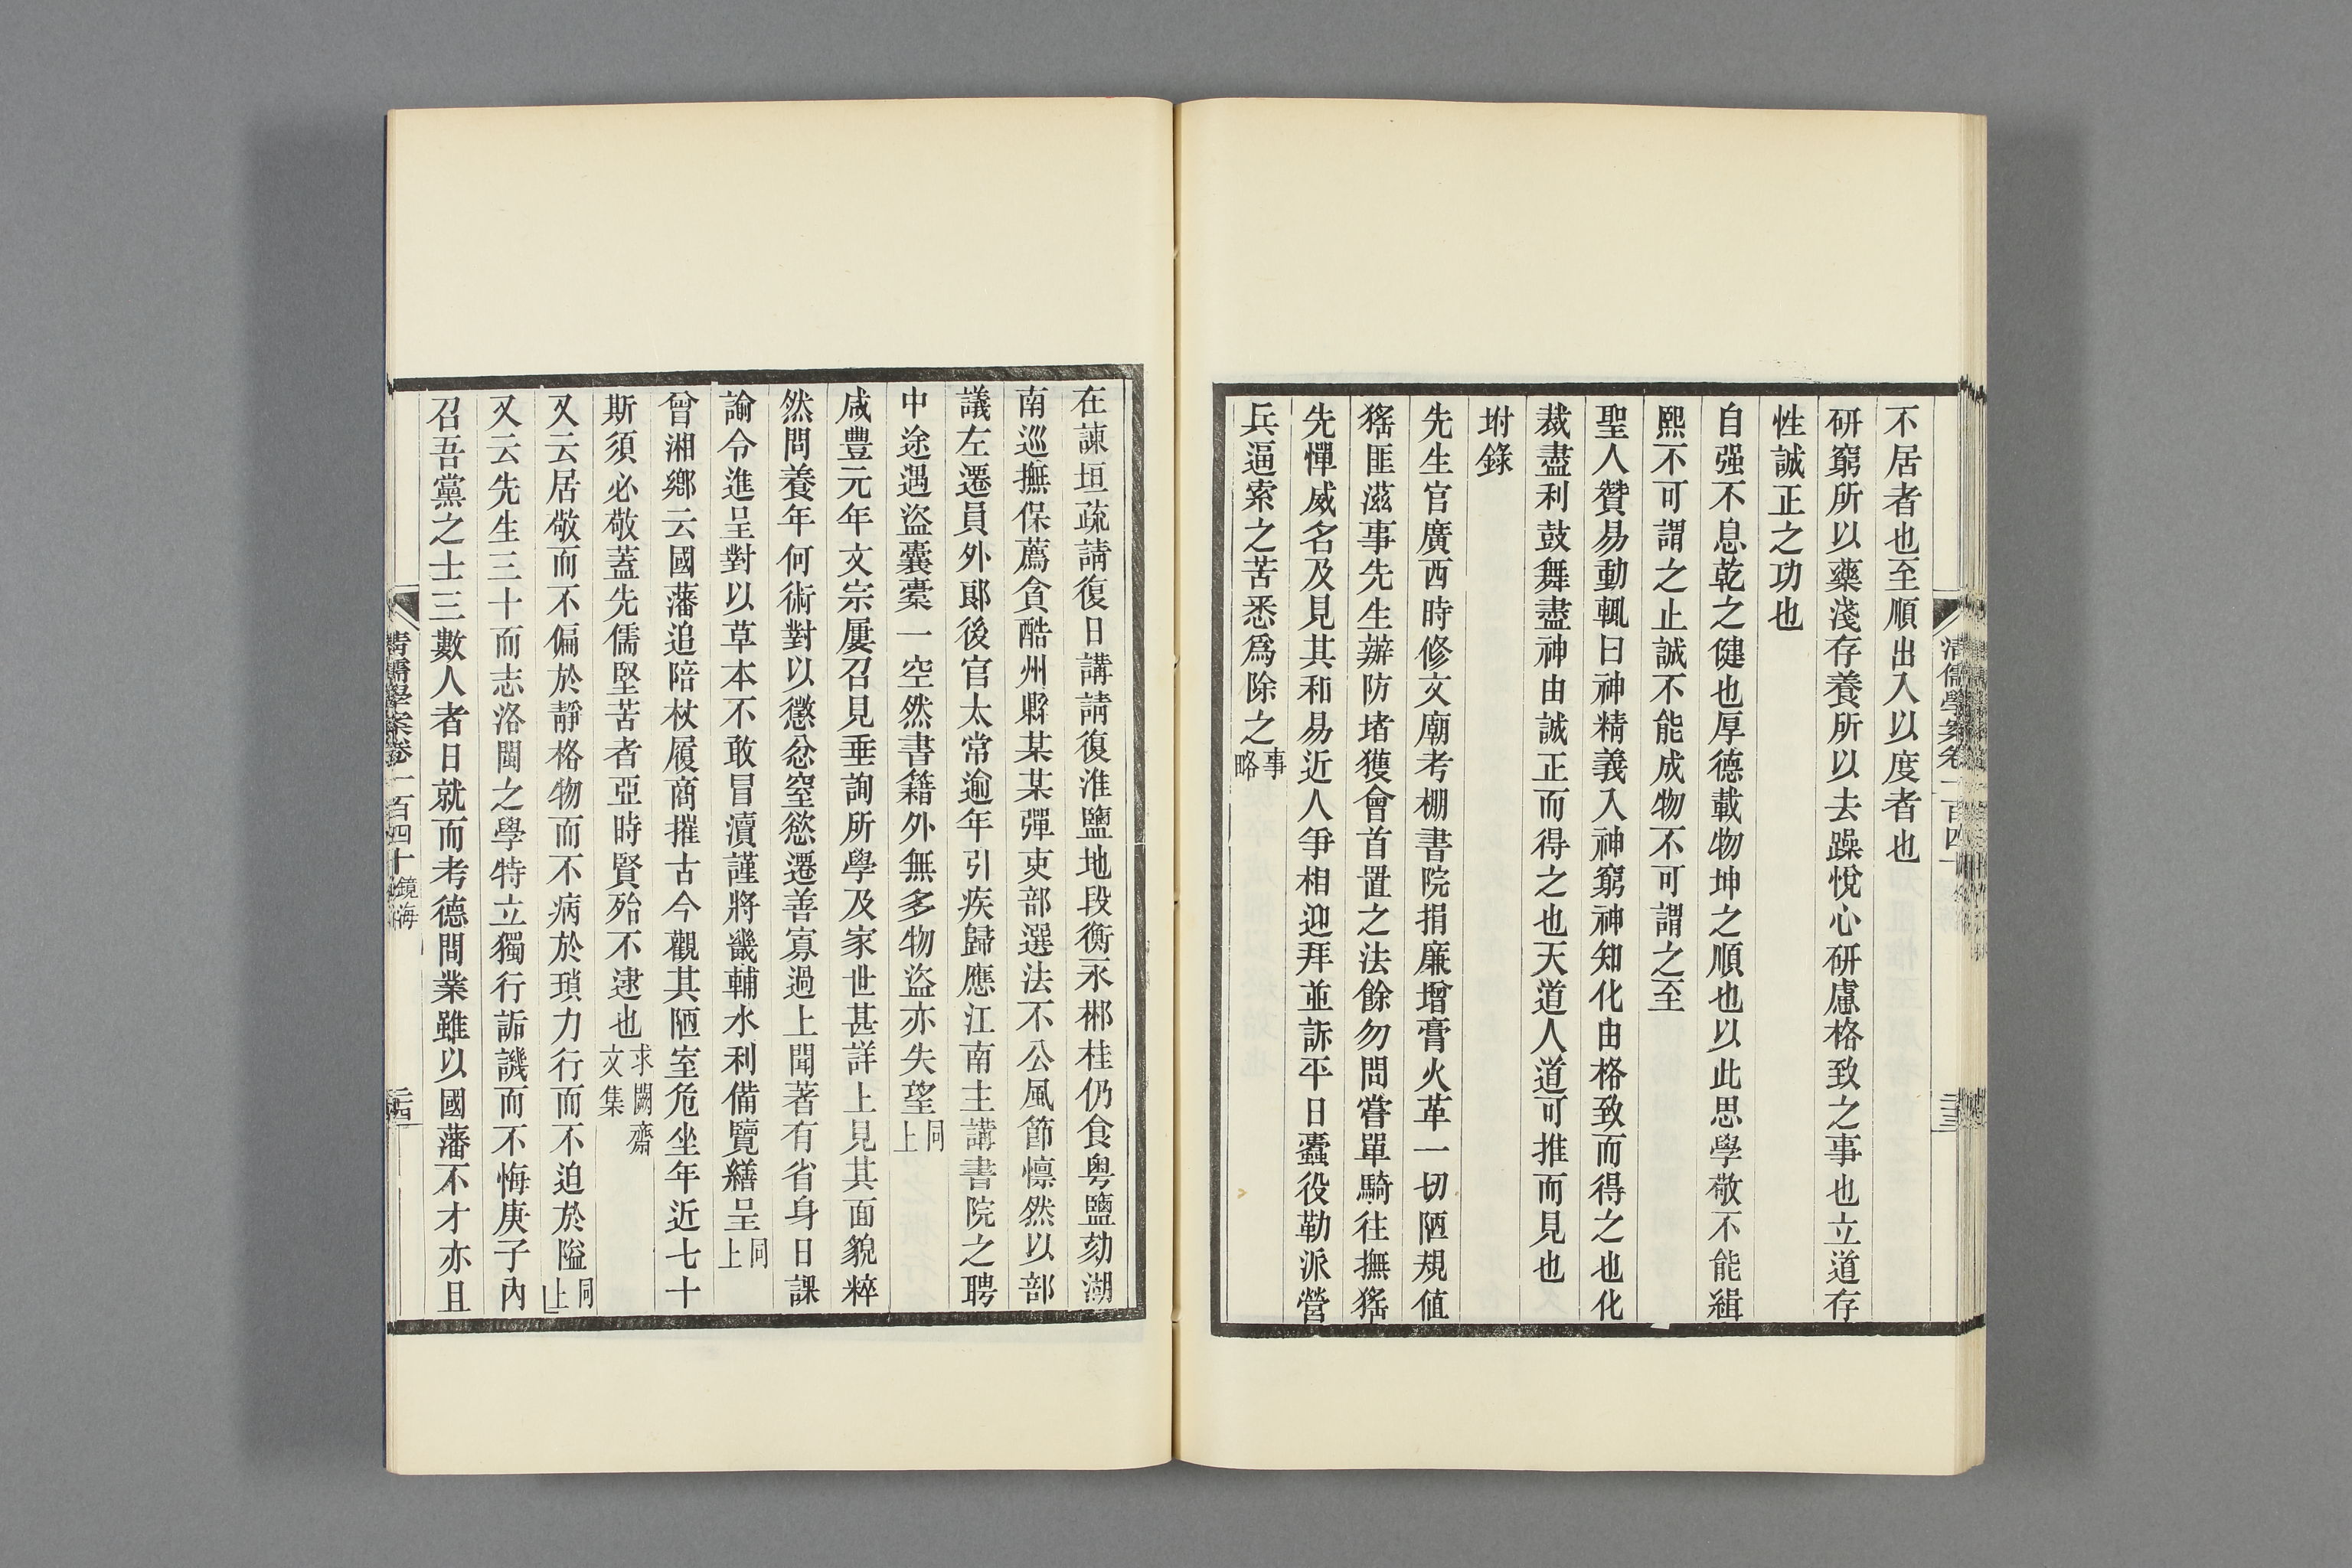 不居者也至順出入以度者也
研窮所以藥淺存養所以去躁悅心研慮格致之事也立道存
性誠正之功也
自强不息乾之健也厚德載物坤之順也以此思學敬不能緝
熙不可謂之止誠不能成物不可謂之至
聖人贊易動輒曰神精義入神窮神知化由格致而得之也化
裁盡利鼓舞盡神由誠正而得之也天道人道可推而見也
坿錄
先生官廣西時修文廟考棚書院捐廉增膏火革一切陋規值
猺匪滋事先生辦防堵獲會首置之法餘勿問嘗單騎往撫猺
先憚威名及見其和易近人爭相迎拜並訴平日蠹役勒派營
兵逼索之苦悉爲除之事略
在諫垣疏請復日講請復淮鹽地段衡永郴桂仍食粤鹽劾湖
南巡撫保薦貪酷州縣某某彈吏部選法不公風節懍然以部
議左遷員外郎後官太常逾年引疾歸應江南主講書院之聘
中途遇盜囊橐一空然書籍外無多物盜亦失望同上
咸豐元年文宗屢召見垂詢所學及家世甚詳上見其面貌粹
然問養年何術對以懲忿窒慾遷善寡過上聞著有省身日課
諭令進呈對以草本不敢冒瀆謹將畿輔水利備覽繕呈同上
曾湘鄉云國藩追陪杖履商搉古今觀其陋室危坐年近七十
斯須必敬蓋先儒堅苦者亞時賢殆不逮也求闕齋文集
又云居敬而不偏於靜格物而不病於瑣力行而不迫於隘同上
又云先生三十而志洛閩之學特立獨行詬譏而不悔庚子內
召吾黨之士三數人者日就而考德問業雖以國藩不才亦且
清儒學案卷一百四十 鏡海
二十四